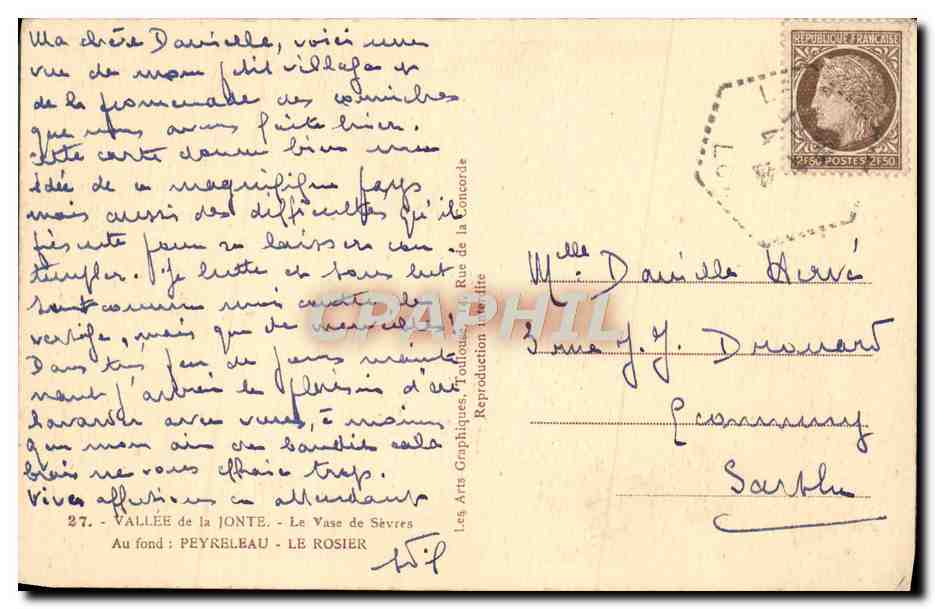 Ma chère Danielle, voici une
vue de mon petit village et
de la promenade des corniches
que nous avons faite hier.
Cette carte donne bien une
idée de ce magnifique pays
mais aussi des difficultés qu'il
présente pour se laisser con-
templer. Je lutte en
comme moi contre le
vertige, mais que de merveilles!
Dans très peu de jours mainte
nant j'aurai le plaisir d'aller
bavarder avec vous, à moins
que mon air de bandit cala
brais ne vous effraie trop.
Vives affections en attendant
27. - VALLÉE de la JONTE. - Le Vase de Sèvres
Au fond : PEYRELEAU - LE ROSIER
Les Arts Graphiques, Toulouse, 14, Rue de la Concorde
Reproduction interdite
CPAPHIL
REPUBLIQUE FRANÇAISE
2F50 POSTES 2F50
Mlle Danielle Hervé
3 rue J. J. Drouard
Ecommoy
Sarthe